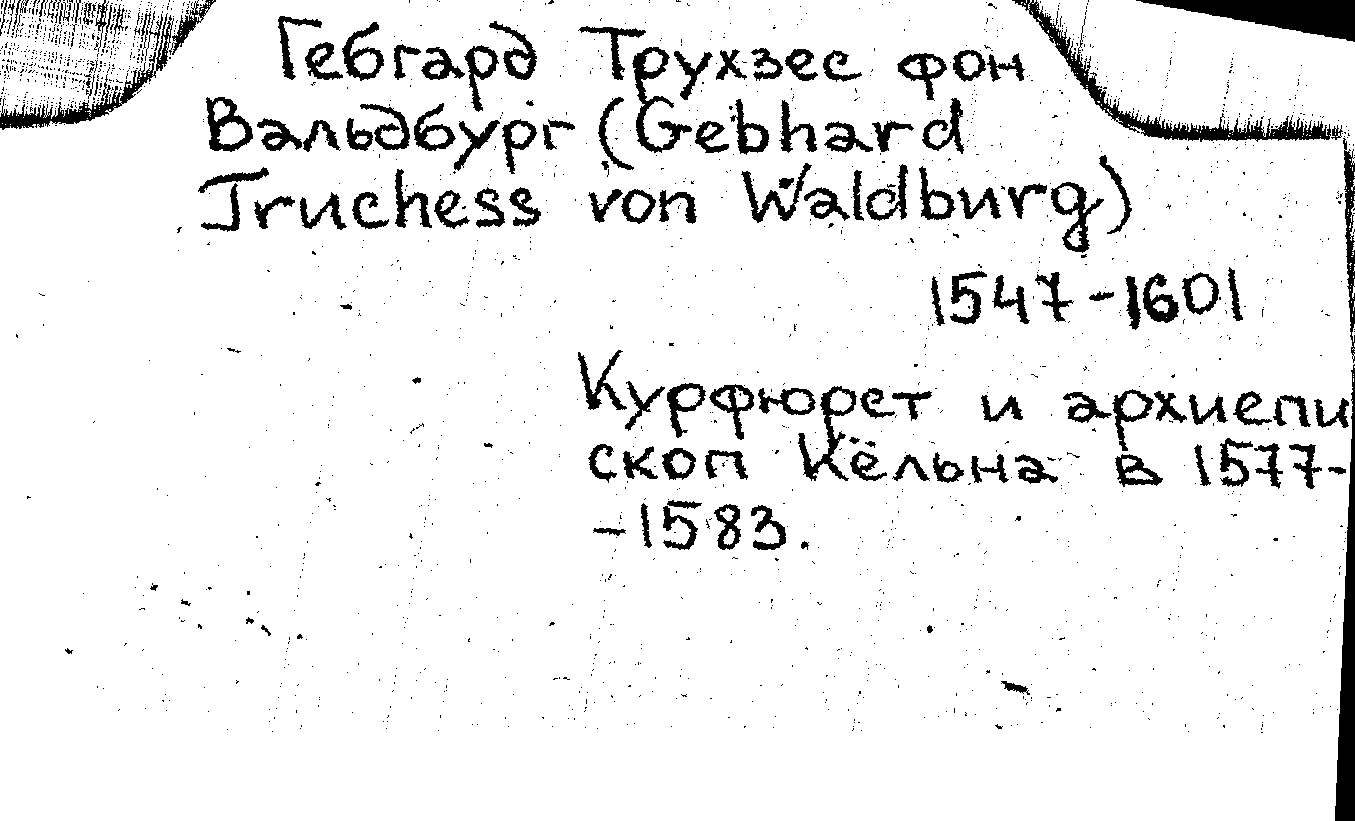 Гебгард Трухзес фон
Вальдбург (Gebhard
Truchess von Waldburg)
1547-1601
Курфюрст и архиепи
скоп Кёльна в 1577-
-1583.